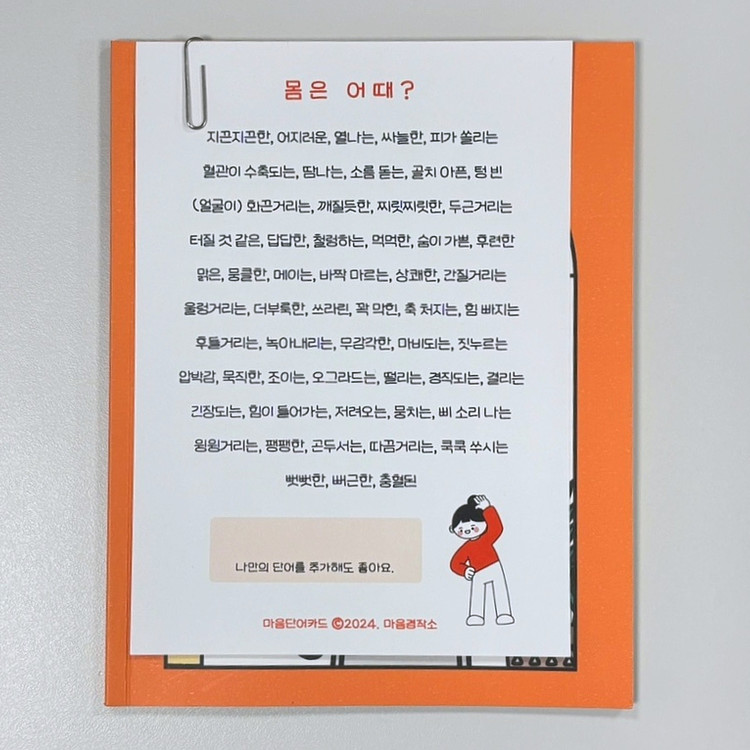 몸은 어때?
지끈지끈한, 어지러운, 열나는, 싸늘한, 피가 쏠리는
혈관이 수축되는, 땀나는, 소름 돋는, 골치 아픈, 텅 빈
(얼굴이) 화끈거리는, 깨질듯한, 찌릿찌릿한, 두근거리는
터질 것 같은, 답답한, 철렁하는, 먹먹한, 숨이 가쁜, 후련한
맑은, 뭉클한, 메이는, 바짝 마르는, 상쾌한, 간질거리는
울렁거리는, 더부룩한, 쓰라린, 꽉 막힌, 축 처지는, 힘 빠지는
후들거리는, 녹아내리는, 무감각한, 마비되는, 짓누르는
압박감, 묵직한, 조이는, 오그라드는, 떨리는, 경직되는, 결리는
긴장되는, 힘이 들어가는, 저려오는, 뭉치는, 삐 소리 나는
윙윙거리는, 팽팽한, 곤두서는, 따끔거리는, 쿡쿡 쑤시는
뻣뻣한, 뻐근한, 충혈된
나만의 단어를 추가해도 좋아요.
마음단어카드 ©2024. 마음경작소